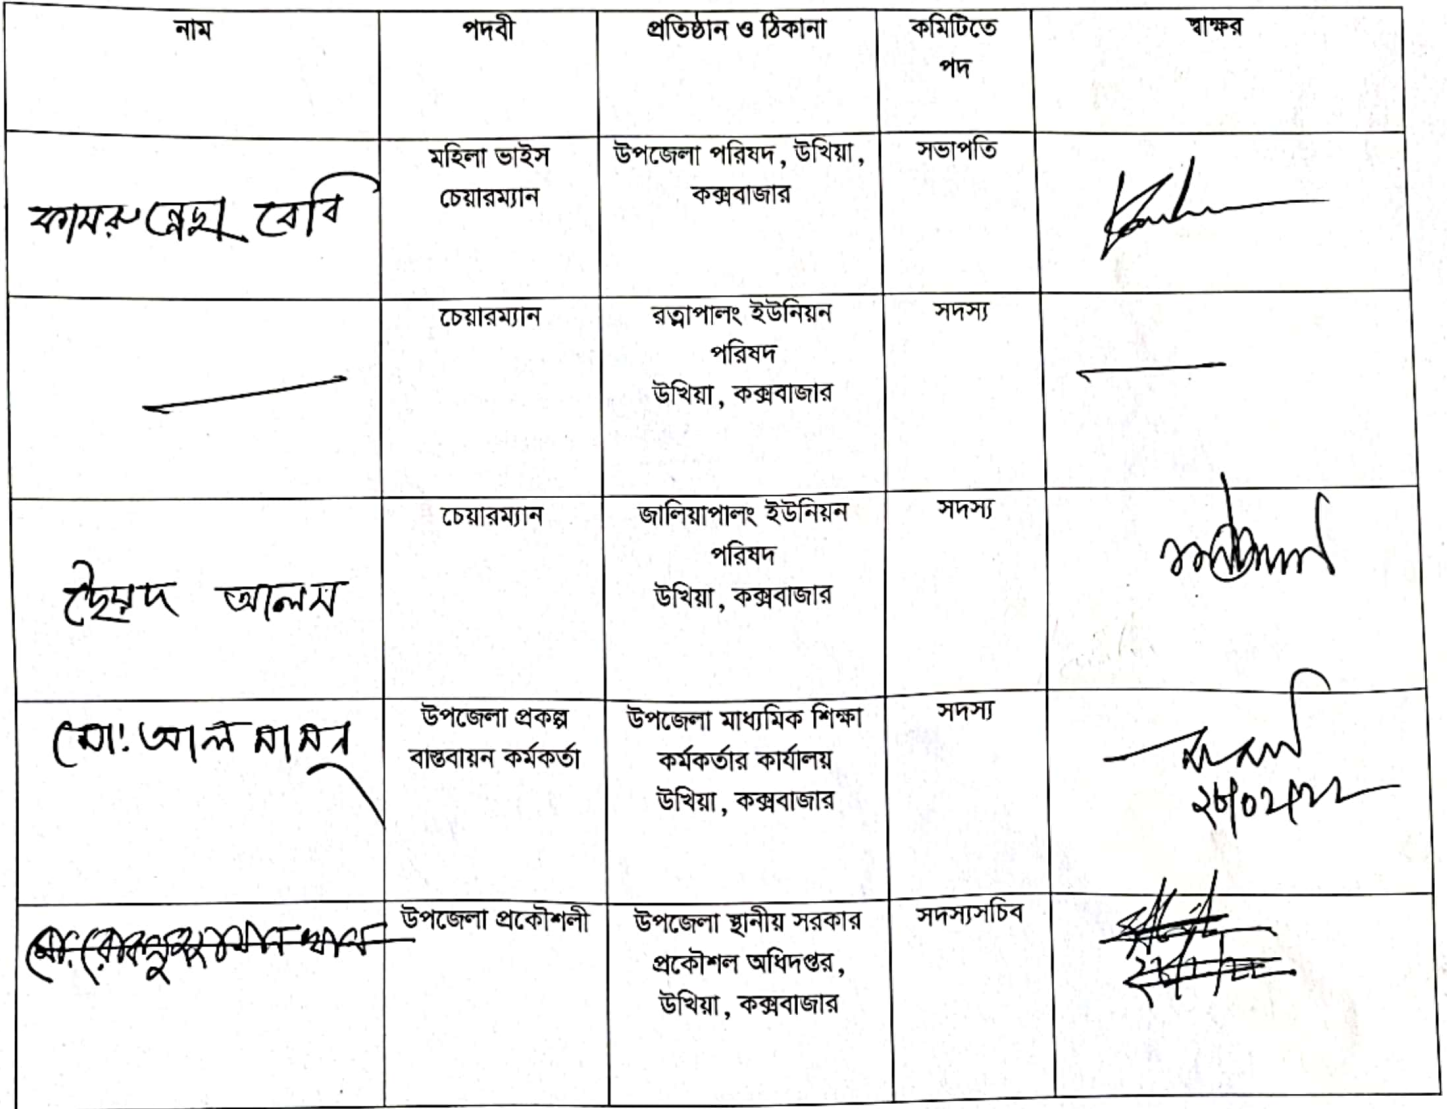 নাম
পদবী
প্রতিষ্ঠান ও ঠিকানা
কমিটিতে
পদ
স্বাক্ষর
কামরুন্নেছা বেবি
মহিলা ভাইস
চেয়ারম্যান
উপজেলা পরিষদ, উখিয়া,
কক্সবাজার
সভাপতি
চেয়ারম্যান
রত্নাপালং ইউনিয়ন
পরিষদ
উখিয়া, কক্সবাজার
সদস্য
ছৈয়দ আলম
চেয়ারম্যান
জালিয়াপালং ইউনিয়ন
পরিষদ
উখিয়া, কক্সবাজার
সদস্য
মো: আল মামুন
উপজেলা প্রকল্প
বাস্তবায়ন কর্মকর্তা
উপজেলা মাধ্যমিক শিক্ষা
কর্মকর্তার কার্যালয়
উখিয়া, কক্সবাজার
সদস্য
উপজেলা প্রকৌশলী
উপজেলা স্থানীয় সরকার
প্রকৌশল অধিদপ্তর,
উখিয়া, কক্সবাজার
সদস্যসচিব